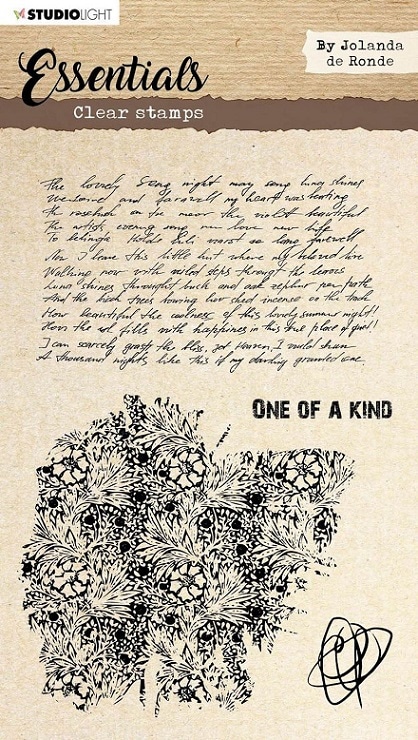 STUDIOLIGHT
Essentials
By Jolanda
de Ronde
Clear stamps
The lovely Song night may song luna shines
and farewell my heart was beating
the violet beautiful
The artists evening song new love new
To long farewell
Now I leave this little hut where my beloved live
Walking now with veiled steps through the leaves
Luna shines throught bush and oak zephyr per path
And the birch trees bowing low shed incense on the track
How beautiful the coolness of this lovely summer night!
How the soul fills with happiness in this true place of quiet!
I can scarcely grasp the bliss, yet Heaven, I would shun
A thousand nights like this if my darling granted one.
ONE OF A KIND